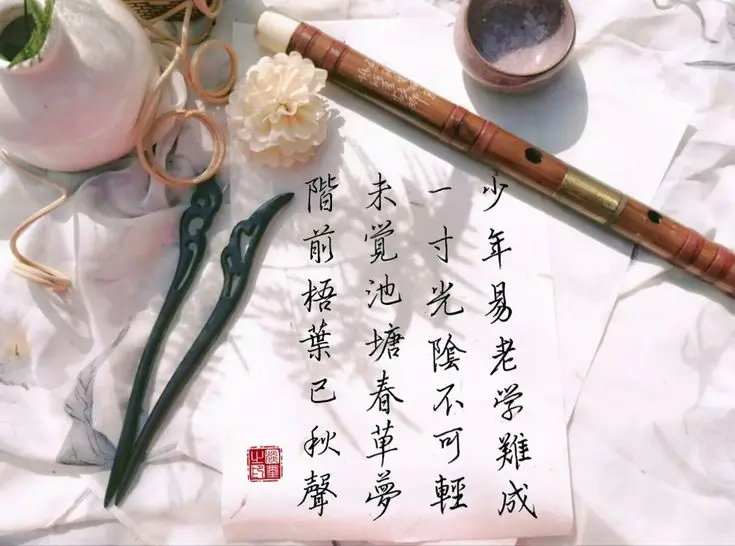 少年易老学難成
一寸光陰不可輕
未覚池塘春草夢
階前梧葉已秋聲